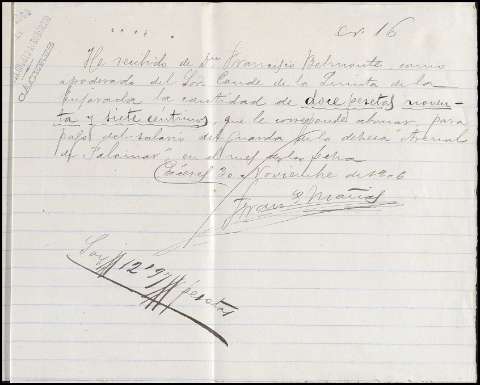 nº 16
He recibido de Dn Francisco Belmonte, como
apoderado del Sor Conde de la Quinta de la
Enjarada la cantidad de doce pesetas noven-
ta y siete centimos, que le corresponde abonar para
pago del salario del Guarda de la dehesa Arenal
de Palomar, en el mes de la fecha
Cáceres 30 Noviembre de 1906
Fran Mañas
Son 12"97 pesetas